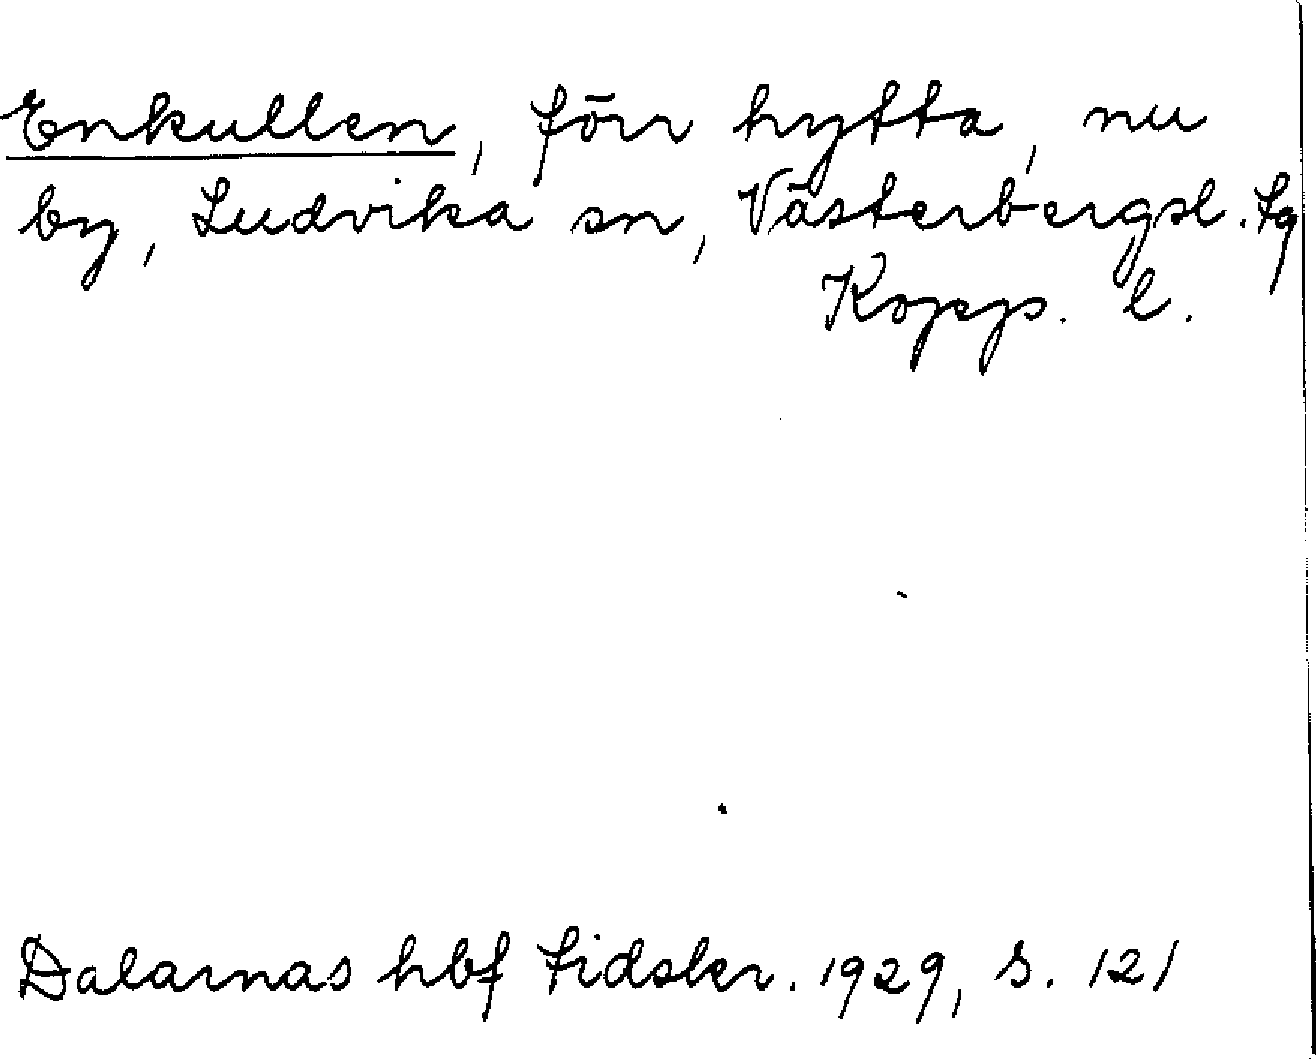 Enkullen, förr hytta, nu
by, Ludvika sn, Västerbergsl. tg
Kopp. l.
Dalarnas hbf tidskr. 1929, s. 121